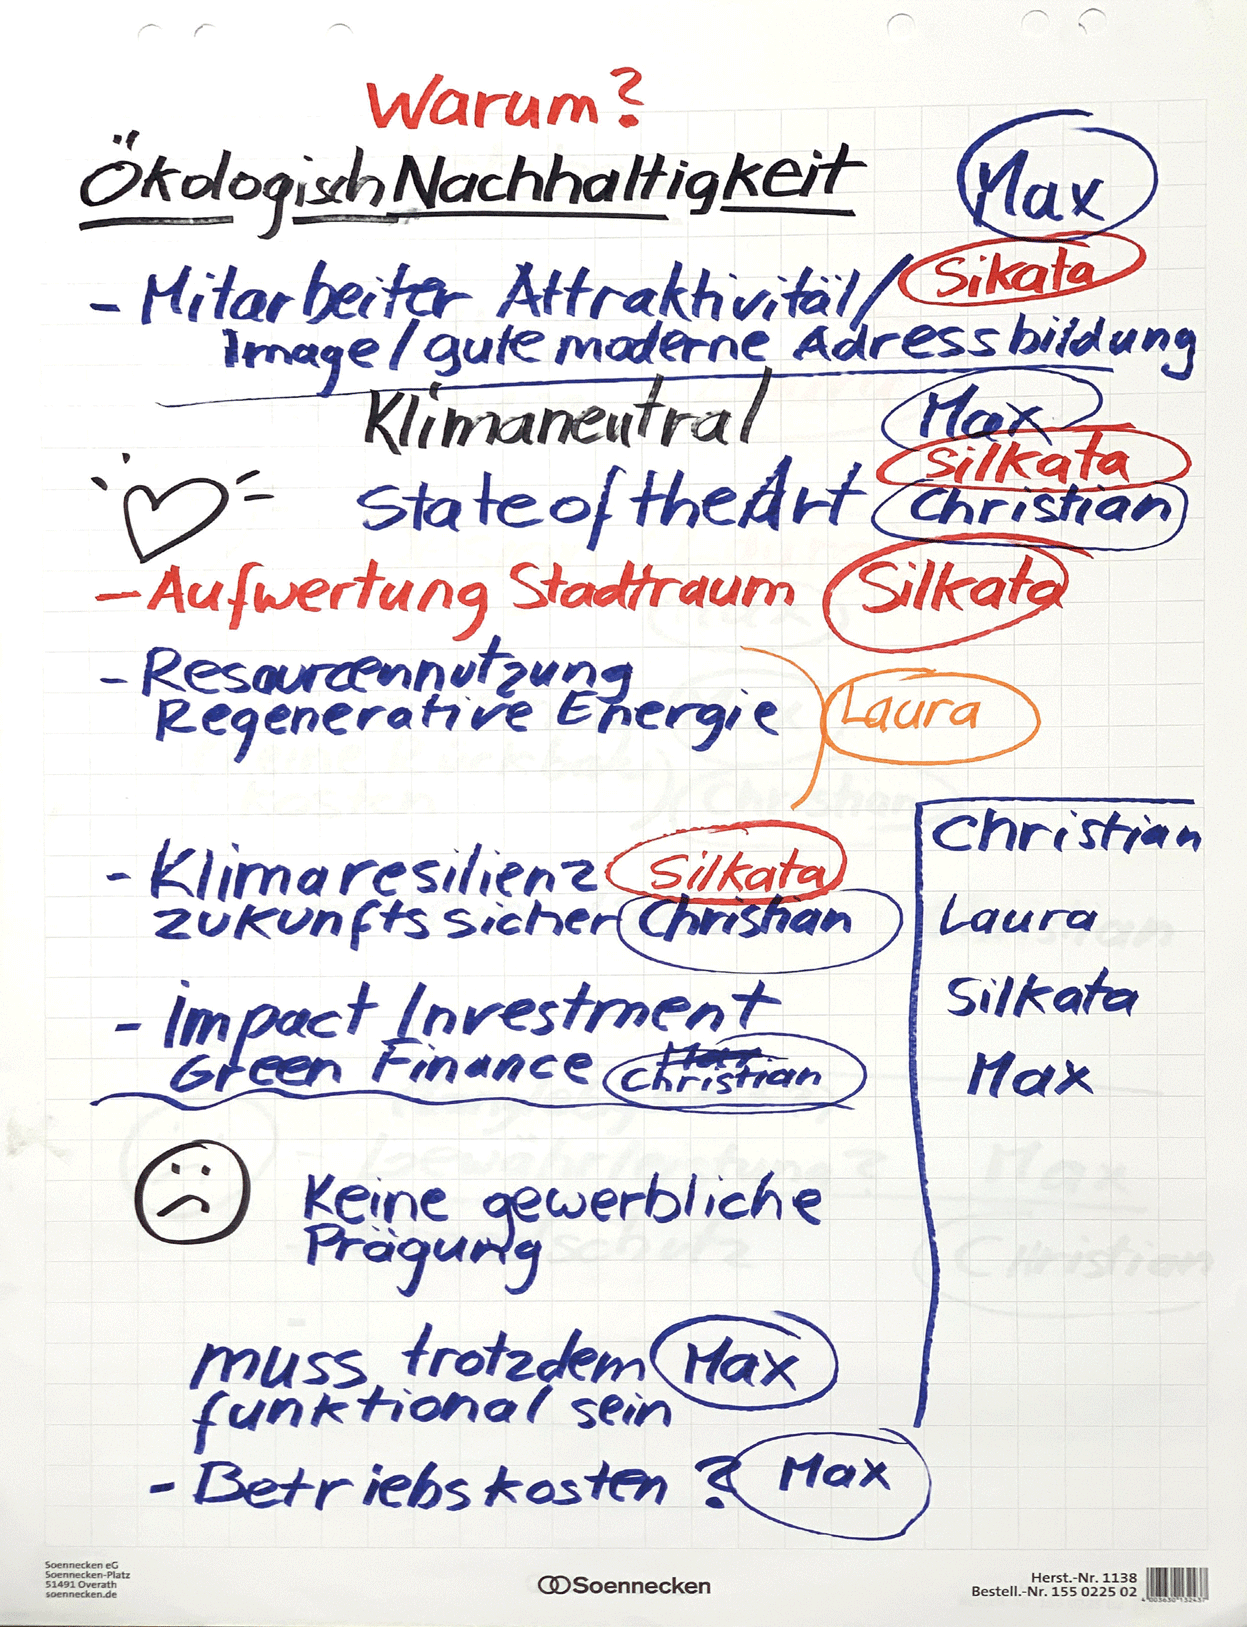 Warum?
Ökologisch Nachhaltigkeit Max
- Mitarbeiter Attraktivität/ Sikata
Image/gute moderne Adressbildung
Klimaneutral Max
Silkata
State of the Art Christian
- Aufwertung Stadtraum Silkata
- Resourcennutzung
Regenerative Energie Laura
- Klimaresilienz Silkata
zukunftssicher Christian
- Impact Investment
Green Finance Christian
Christian
Laura
Silkata
Max
Keine gewerbliche
Prägung
muss trotzdem Max
funktional sein
- Betriebskosten ? Max
Soennecken eG
Soennecken-Platz
51491 Overath
soennecken.de
Soennecken
Herst.-Nr. 1138
Bestell.-Nr. 155 0225 02